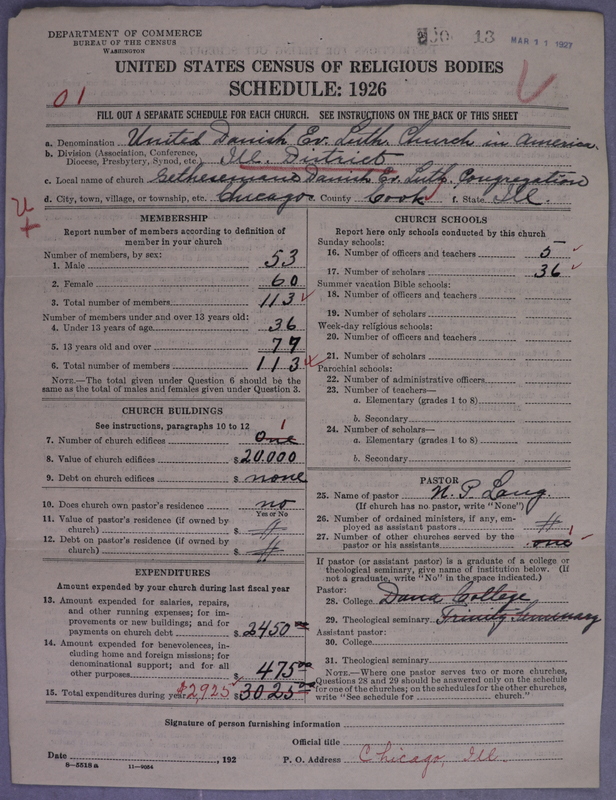 DEPARTMENT OF COMMERCE
BUREAU OF THE CENSUS
WASHINGTON
13
MAR 11 1927
UNITED STATES CENSUS OF RELIGIOUS BODIES
SCHEDULE: 1926
01
FILL OUT A SEPARATE SCHEDULE FOR EACH CHURCH. SEE INSTRUCTIONS ON THE BACK OF THIS SHEET
a. Denomination United Danish Ev. Luth. Church in America
b. Division (Association, Conference, Diocese, Presbytery, Synod, etc.) Ill. District
c. Local name of church Gethesemane Danish Ev. Luth. Congregation
d. City, town, village, or township, etc. Chicago County Cook f. State Ill.
MEMBERSHIP
Report number of members according to definition of
member in your church
Number of members, by sex:
1. Male 53
2. Female 60
3. Total number of members 113
Number of members under and over 13 years old:
4. Under 13 years of age 36
5. 13 years old and over 77
6. Total number of members 113
NOTE.—The total given under Question 6 should be the
same as the total of males and females given under Question 3.
CHURCH BUILDINGS
See instructions, paragraphs 10 to 12
7. Number of church edifices one 1
8. Value of church edifices $ 20.000
9. Debt on church edifices $ none
10. Does church own pastor's residence no
Yes or No
11. Value of pastor's residence (if owned by
church) $
12. Debt on pastor's residence (if owned by
church) $
EXPENDITURES
Amount expended by your church during last fiscal year
13. Amount expended for salaries, repairs,
and other running expenses; for im-
provements or new buildings; and for
payments on church debt $ 2450 00
14. Amount expended for benevolences, in-
cluding home and foreign missions; for
denominational support; and for all
other purposes $ 475 00
15. Total expenditures during year $2,925 $ 3025 00
CHURCH SCHOOLS
Report here only schools conducted by this church
Sunday schools:
16. Number of officers and teachers 5
17. Number of scholars 36
Summer vacation Bible schools:
18. Number of officers and teachers
19. Number of scholars
Week-day religious schools:
20. Number of officers and teachers
21. Number of scholars
Parochial schools:
22. Number of administrative officers
23. Number of teachers—
a. Elementary (grades 1 to 8)
b. Secondary
24. Number of scholars—
a. Elementary (grades 1 to 8)
b. Secondary
PASTOR
25. Name of pastor N. P. Lang.
(If church has no pastor, write "None")
26. Number of ordained ministers, if any, em-
ployed as assistant pastors
27. Number of other churches served by the
pastor or his assistants one 1
If pastor (or assistant pastor) is a graduate of a college or
theological seminary, give name of institution below. (If
not a graduate, write "No" in the space indicated.)
Pastor:
28. College Dana College
29. Theological seminary Trinity Seminary
Assistant pastor:
30. College
31. Theological seminary
NOTE.—Where one pastor serves two or more churches,
Questions 28 and 29 should be answered only on the schedule
for one of the churches; on the schedules for the other churches,
write "See schedule for church."
Signature of person furnishing information
Official title
Date , 192 P. O. Address Chicago, Ill.
8—5518a 11—9054